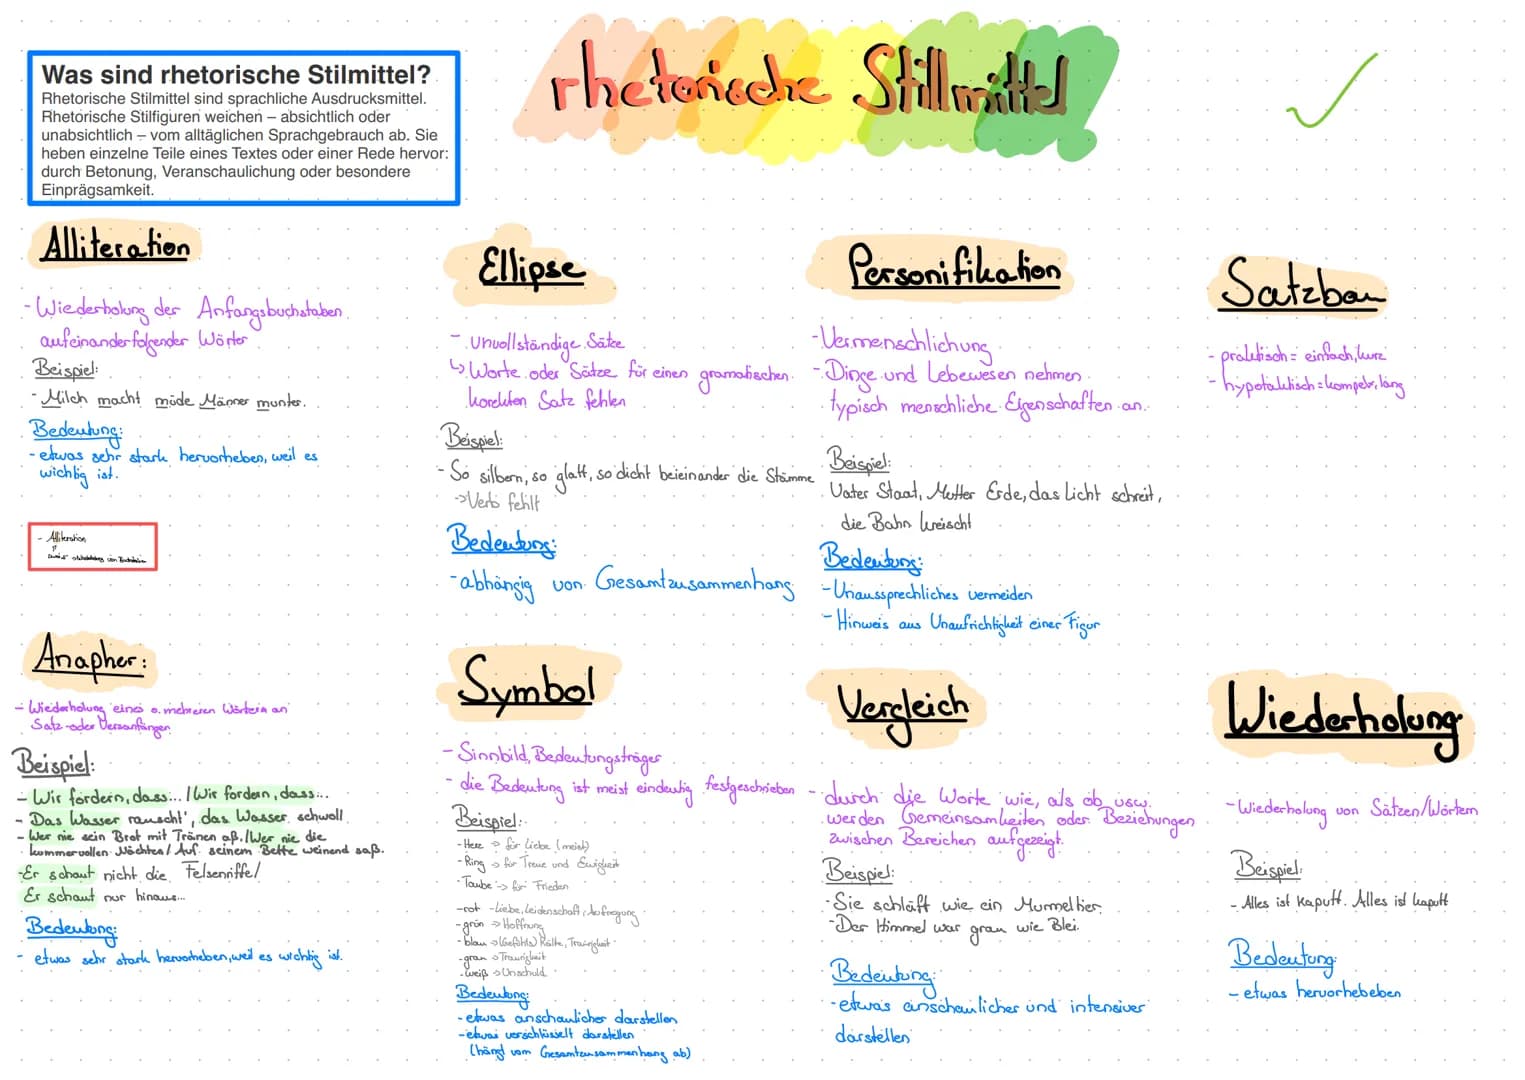 rhetorische Stillmittel
Was sind rhetorische Stilmittel?
Rhetorische Stilmittel sind sprachliche Ausdrucksmittel.
Rhetorische Stilfiguren weichen – absichtlich oder
unabsichtlich – vom alltäglichen Sprachgebrauch ab. Sie
heben einzelne Teile eines Textes oder einer Rede hervor:
durch Betonung, Veranschaulichung oder besondere
Einprägsamkeit.
Alliteration
- Wiederholung der Anfangsbuchstaben
aufeinanderfolgender Wörter
Beispiel:
- Milch macht müde Männer munter.
Bedeutung:
- etwas sehr stark hervorheben, weil es
wichtig ist.
- Alliteration
Ellipse
- unvollständige Sätze
↳ Worte oder Sätze für einen gramatischen
korekten Satz fehlen
Beispiel:
- So silbern, so glatt, so dicht beieinander die Stämme
-> Verb fehlt
Bedeutung:
- abhängig von Gesamtzusammenhang
Personifikation
- Vermenschlichung
- Dinge und Lebewesen nehmen
typisch menschliche Eigenschaften an.
Beispiel:
Vater Staat, Mutter Erde, das Licht schreit,
die Bahn kreischt
Bedeutung:
- Unaussprechliches vermeiden
- Hinweis aus Unaufrichtigkeit einer Figur
Satzbau
- praktisch = einfach, kurz
- hypotaktisch = kompelx, lang
Anapher:
- Wiederholung eines o. mehreren Wörtern an
Satz- oder Versanfängen
Beispiel:
- Wir fordern, dass... / Wir fordern, dass...
- Das Wasser rauscht', das Wasser schwoll
- Wer nie sein Brot mit Tränen aß. / Wer nie die
kummervollen Nächtes / Auf seinem Bette weinend saß.
- Er schaut nicht die Felsenriffe /
Er schaut nur hinaus...
Bedeutung:
- etwas sehr stark hervorheben, weil es wichtig ist.
Symbol
- Sinnbild, Bedeutungsträger
- die Bedeutung ist meist eindeutig festgeschrieben
Beispiel:
- Herz -> für Liebe (meist)
- Ring -> für Treue und Ewigkeit
- Taube -> für Frieden
- rot - Liebe, Leidenschaft, Aufregung
- grün -> Hoffnung
- blau -> (Gefühls) Kälte, Traurigkeit
- grau -> Traurigkeit
- weiß -> Unschuld
Bedeutung:
- etwas anschaulicher darstellen
- etwas verschlüsselt darstellen
(hängt vom Gesamtzusammenhang ab)
Vergleich
- durch die Worte wie, als ob usw.
werden Gemeinsamkeiten oder Beziehungen
zwischen Bereichen aufgezeigt.
Beispiel:
- Sie schläft wie ein Murmeltier.
- Der Himmel war grau wie Blei.
Bedeutung:
- etwas anschaulicher und intensiver
darstellen
Wiederholung
- Wiederholung von Sätzen/Wörtern
Beispiel:
- Alles ist kaputt. Alles ist kaputt
Bedeutung:
- etwas hervorhebeben